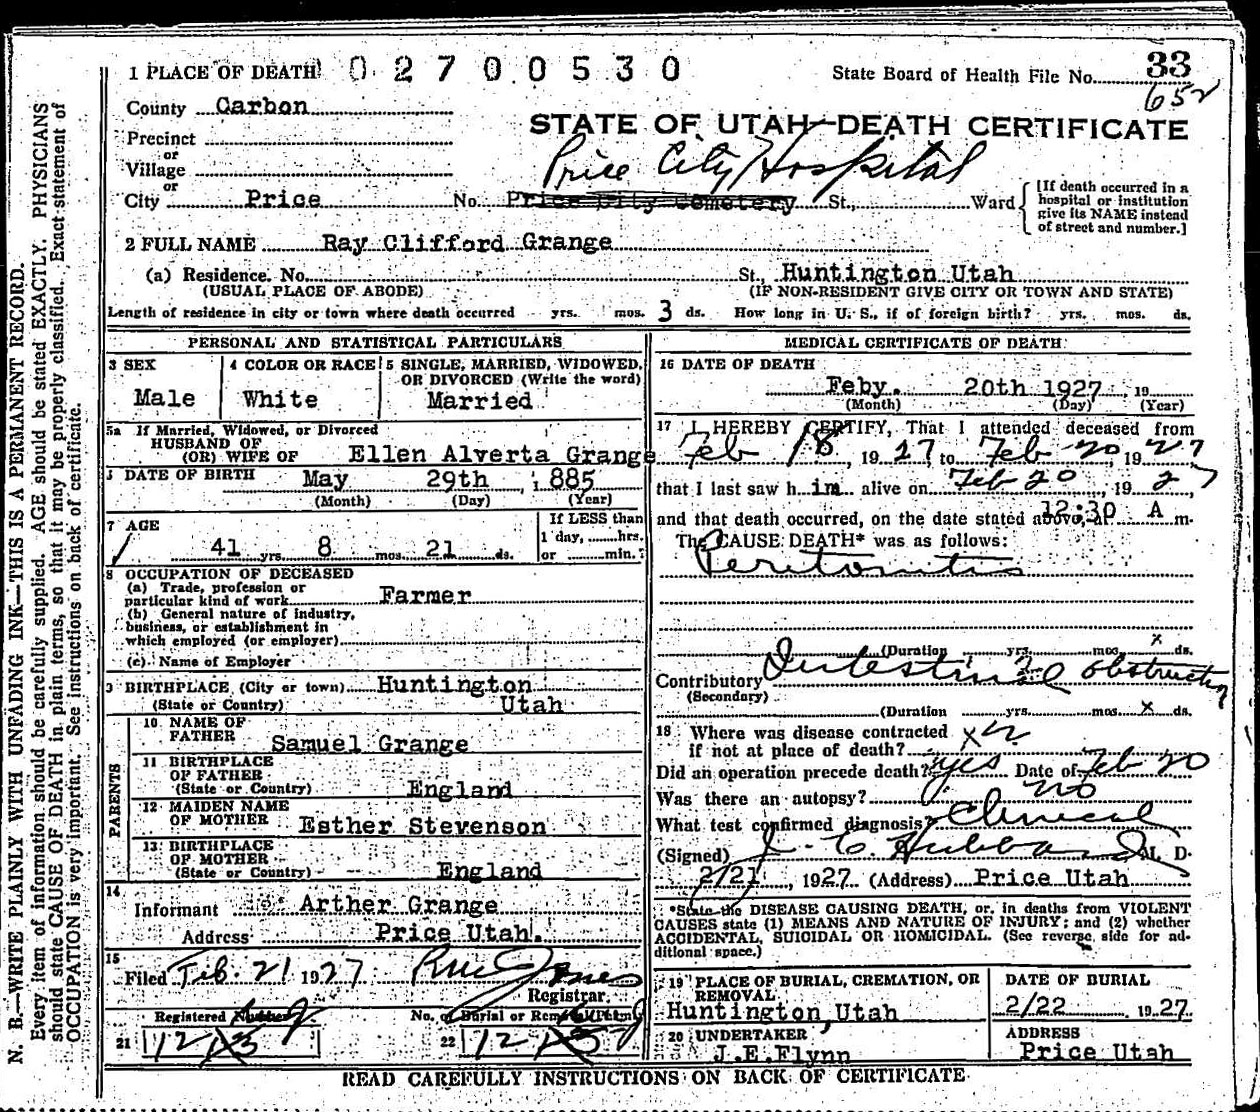 1 PLACE OF DEATH 0 2 7 0 0 5 3 0 State Board of Health File No. 33
652
County Carbon
STATE OF UTAH—DEATH CERTIFICATE
Precinct
or
Village
Price City Hospital
or
City Price No. Price City Cemetery St., Ward
[If death occurred in a
hospital or institution
give its NAME instead
of street and number.]
2 FULL NAME Ray Clifford Grange
(a) Residence. No. St., Huntington Utah
(USUAL PLACE OF ABODE) (IF NON-RESIDENT GIVE CITY OR TOWN AND STATE)
Length of residence in city or town where death occurred yrs. mos. 3 ds. How long in U. S., if of foreign birth? yrs. mos. ds.
PERSONAL AND STATISTICAL PARTICULARS
3 SEX
Male
4 COLOR OR RACE
White
5 SINGLE, MARRIED, WIDOWED,
OR DIVORCED (Write the word)
Married
5a If Married, Widowed, or Divorced
HUSBAND OF
(OR) WIFE OF Ellen Alverta Grange
DATE OF BIRTH May 29th 1885
(Month) (Day) (Year)
7 AGE
41 yrs. 8 mos. 21 ds.
If LESS than
1 day, hrs.
or min.?
8 OCCUPATION OF DECEASED
(a) Trade, profession or
particular kind of work Farmer
(b) General nature of industry,
business, or establishment in
which employed (or employer)
(c) Name of Employer
9 BIRTHPLACE (City or town) Huntington
(State or Country) Utah
PARENTS
10 NAME OF
FATHER Samuel Grange
11 BIRTHPLACE
OF FATHER
(State or Country) England
12 MAIDEN NAME
OF MOTHER Esther Stevenson
13 BIRTHPLACE
OF MOTHER
(State or Country) England
14
Informant Arther Grange
Address Price Utah.
15
Filed Feb. 21 1927
Registrar.
Registered Number
No. of Burial or Removal Permit
21 12
22 12
MEDICAL CERTIFICATE OF DEATH
16 DATE OF DEATH
Feby. 20th 1927, 19
(Month) (Day) (Year)
17 I HEREBY CERTIFY, That I attended deceased from
Feb 18, 1927 to Feb 20 1927
that I last saw him alive on Feb 20, 1927,
and that death occurred, on the date stated above, at 12:30 A m.
The CAUSE DEATH* was as follows:
Peritonitis
(Duration yrs. mos. x ds.
Contributory Intestinal obstruction
(Secondary)
(Duration yrs. mos. x ds.
18 Where was disease contracted
if not at place of death?
Did an operation precede death? yes Date of Feb 20
Was there an autopsy? no
What test confirmed diagnosis? Clinical
(Signed) J. C. Hubbard M. D.
2/21, 1927 (Address) Price Utah
*State the DISEASE CAUSING DEATH, or, in deaths from VIOLENT
CAUSES state (1) MEANS AND NATURE OF INJURY; and (2) whether
ACCIDENTAL, SUICIDAL OR HOMICIDAL. (See reverse side for ad-
ditional space.)
19 PLACE OF BURIAL, CREMATION, OR
REMOVAL
Huntington, Utah
DATE OF BURIAL
2/22 1927
20 UNDERTAKER
J.E.Flynn
ADDRESS
Price Utah
READ CAREFULLY INSTRUCTIONS ON BACK OF CERTIFICATE
N. B.—WRITE PLAINLY WITH UNFADING INK—THIS IS A PERMANENT RECORD.
Every item of information should be carefully supplied. AGE should be stated EXACTLY. PHYSICIANS
should state CAUSE OF DEATH in plain terms, so that it may be properly classified. Exact statement of
OCCUPATION is very important. See instructions on back of certificate.